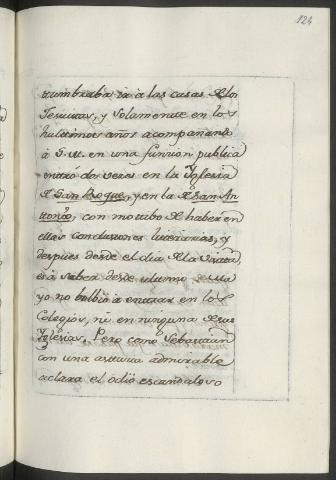 124
tumbraba ir à las casas de los
Jesuitas, y solamente en los
hultimos años acompañando
à S. M. en una funcion publica
entrò dos veses en la Yglesia
de San Roque, y en la de San An
tonio, con motibo de haber en
ellas conclusiones literarias, y
despues desde el dia de la Visita,
es à saber desde ultimo de Ma
yo no bolbiò à entrar en los
Colegios, ni en ninguna de sus
Yglesias. Pero como Sebastian
con una astucia admirable
aclara el odio escandaloso